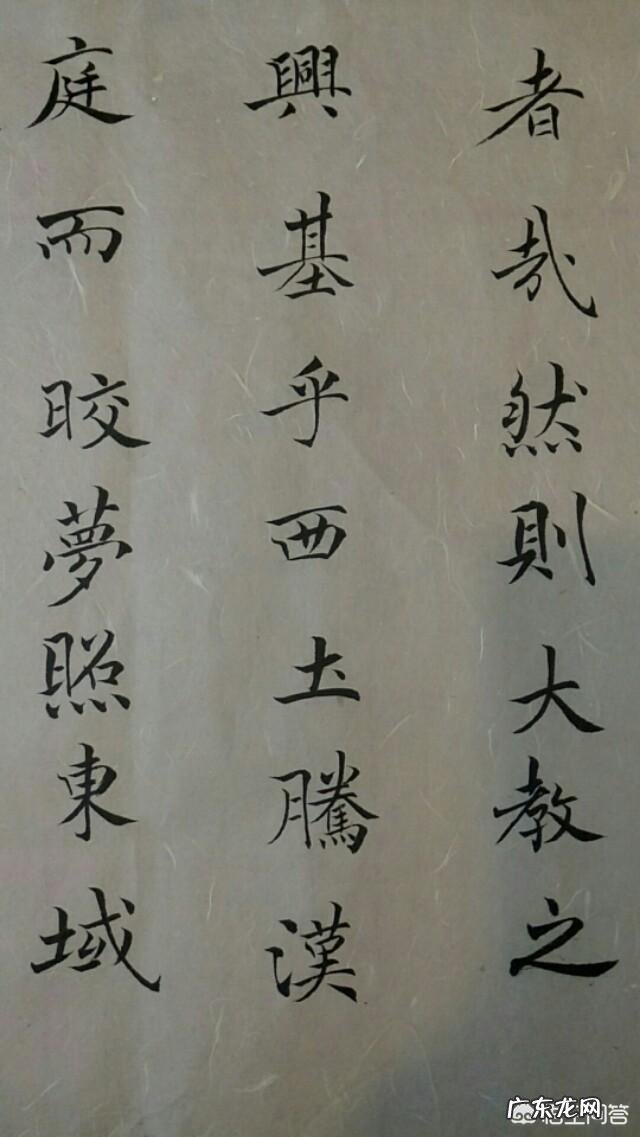 者哉然則大教之
興基乎西土騰漢
庭而晈夢照東域
广东龙网
悟空问答